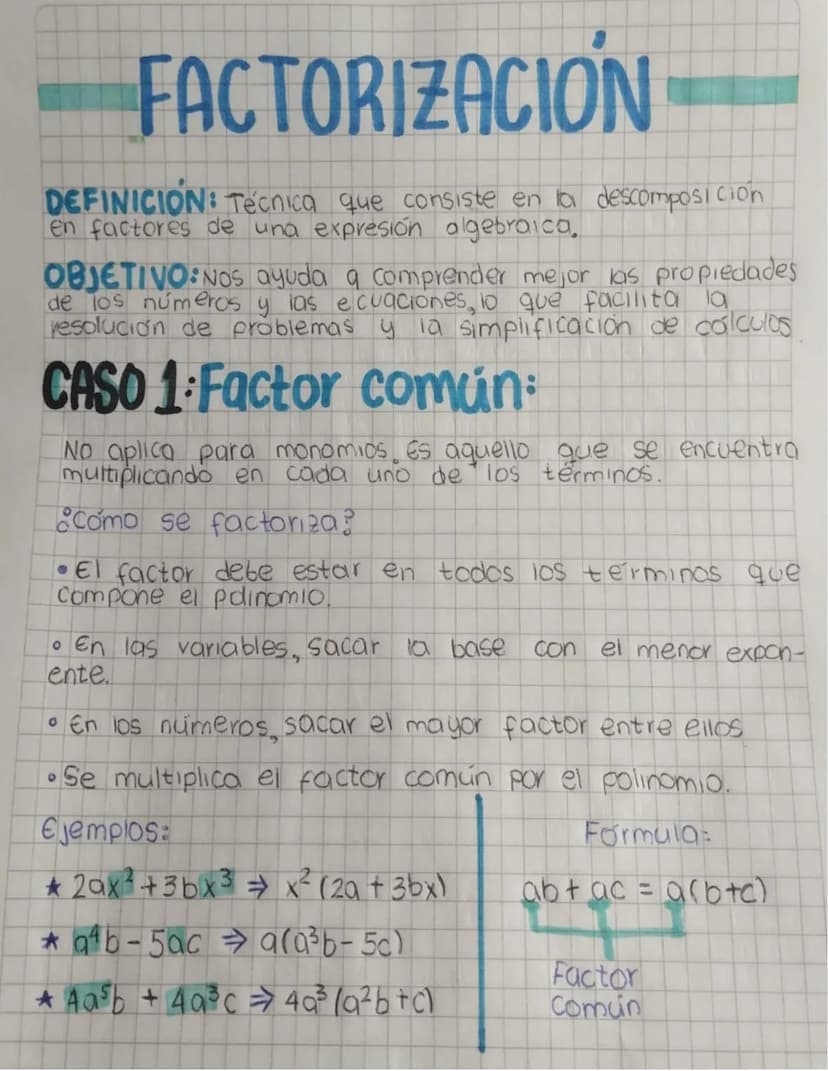 FACTORIZACIÓN
DEFINICIÓN: Técnica que consiste en la descomposición
en factores de una expresión algebraica.
OBJETIVO: Nos ayuda a comprender mejor las propiedades
de los números y las ecuaciones, lo que facilita la
resolución de problemas y la simplificación de cálculos.
CASO 1: Factor común:
No aplica para monomios. Es aquello que se encuentra
multiplicando en cada uno de los términos.
¿Cómo se factoriza?
• El factor debe estar en todos los términos que
compone el polinomio.
• En las variables, sacar la base con el menor expon-
ente.
• En los números, sacar el mayor factor entre ellos
• Se multiplica el factor común por el polinomio.
Ejemplos:
★ 2ax² + 3bx³ ⇒ x² (2a + 3bx)
★ a⁴b - 5ac ⇒ a(a³b - 5c)
★ 4a⁵b + 4a³c ⇒ 4a³ (a²b + c)
Fórmula:
ab + ac = a(b+c)
Factor
Común